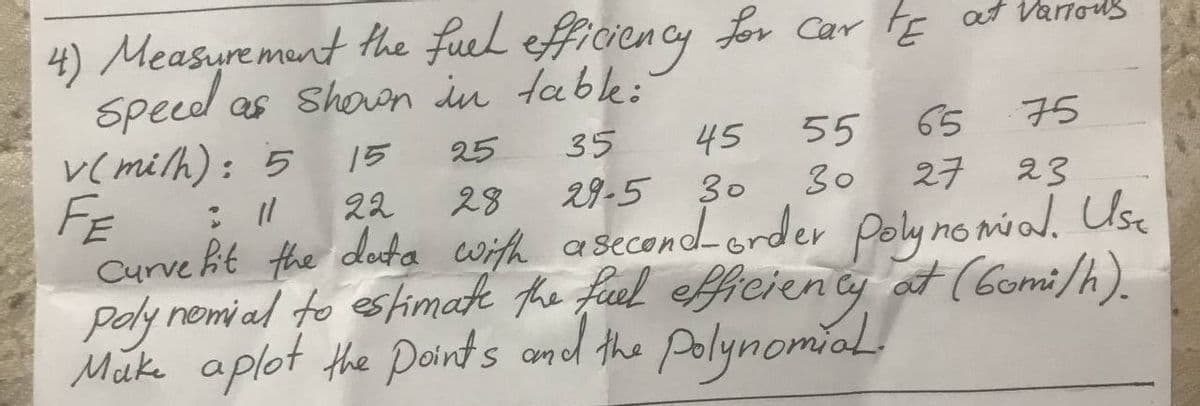 4) Measurement the fuel efficiency for car FE at various
speed as shown in table:
v(mi/h): 5 15 25 35 45 55 65 75
FE : 11 22 28 29.5 30 30 27 23
Curve fit the data with a second-order polynomial. Use
polynomial to estimate the fuel efficiency at (60mi/h).
Make a plot the points and the polynomial.